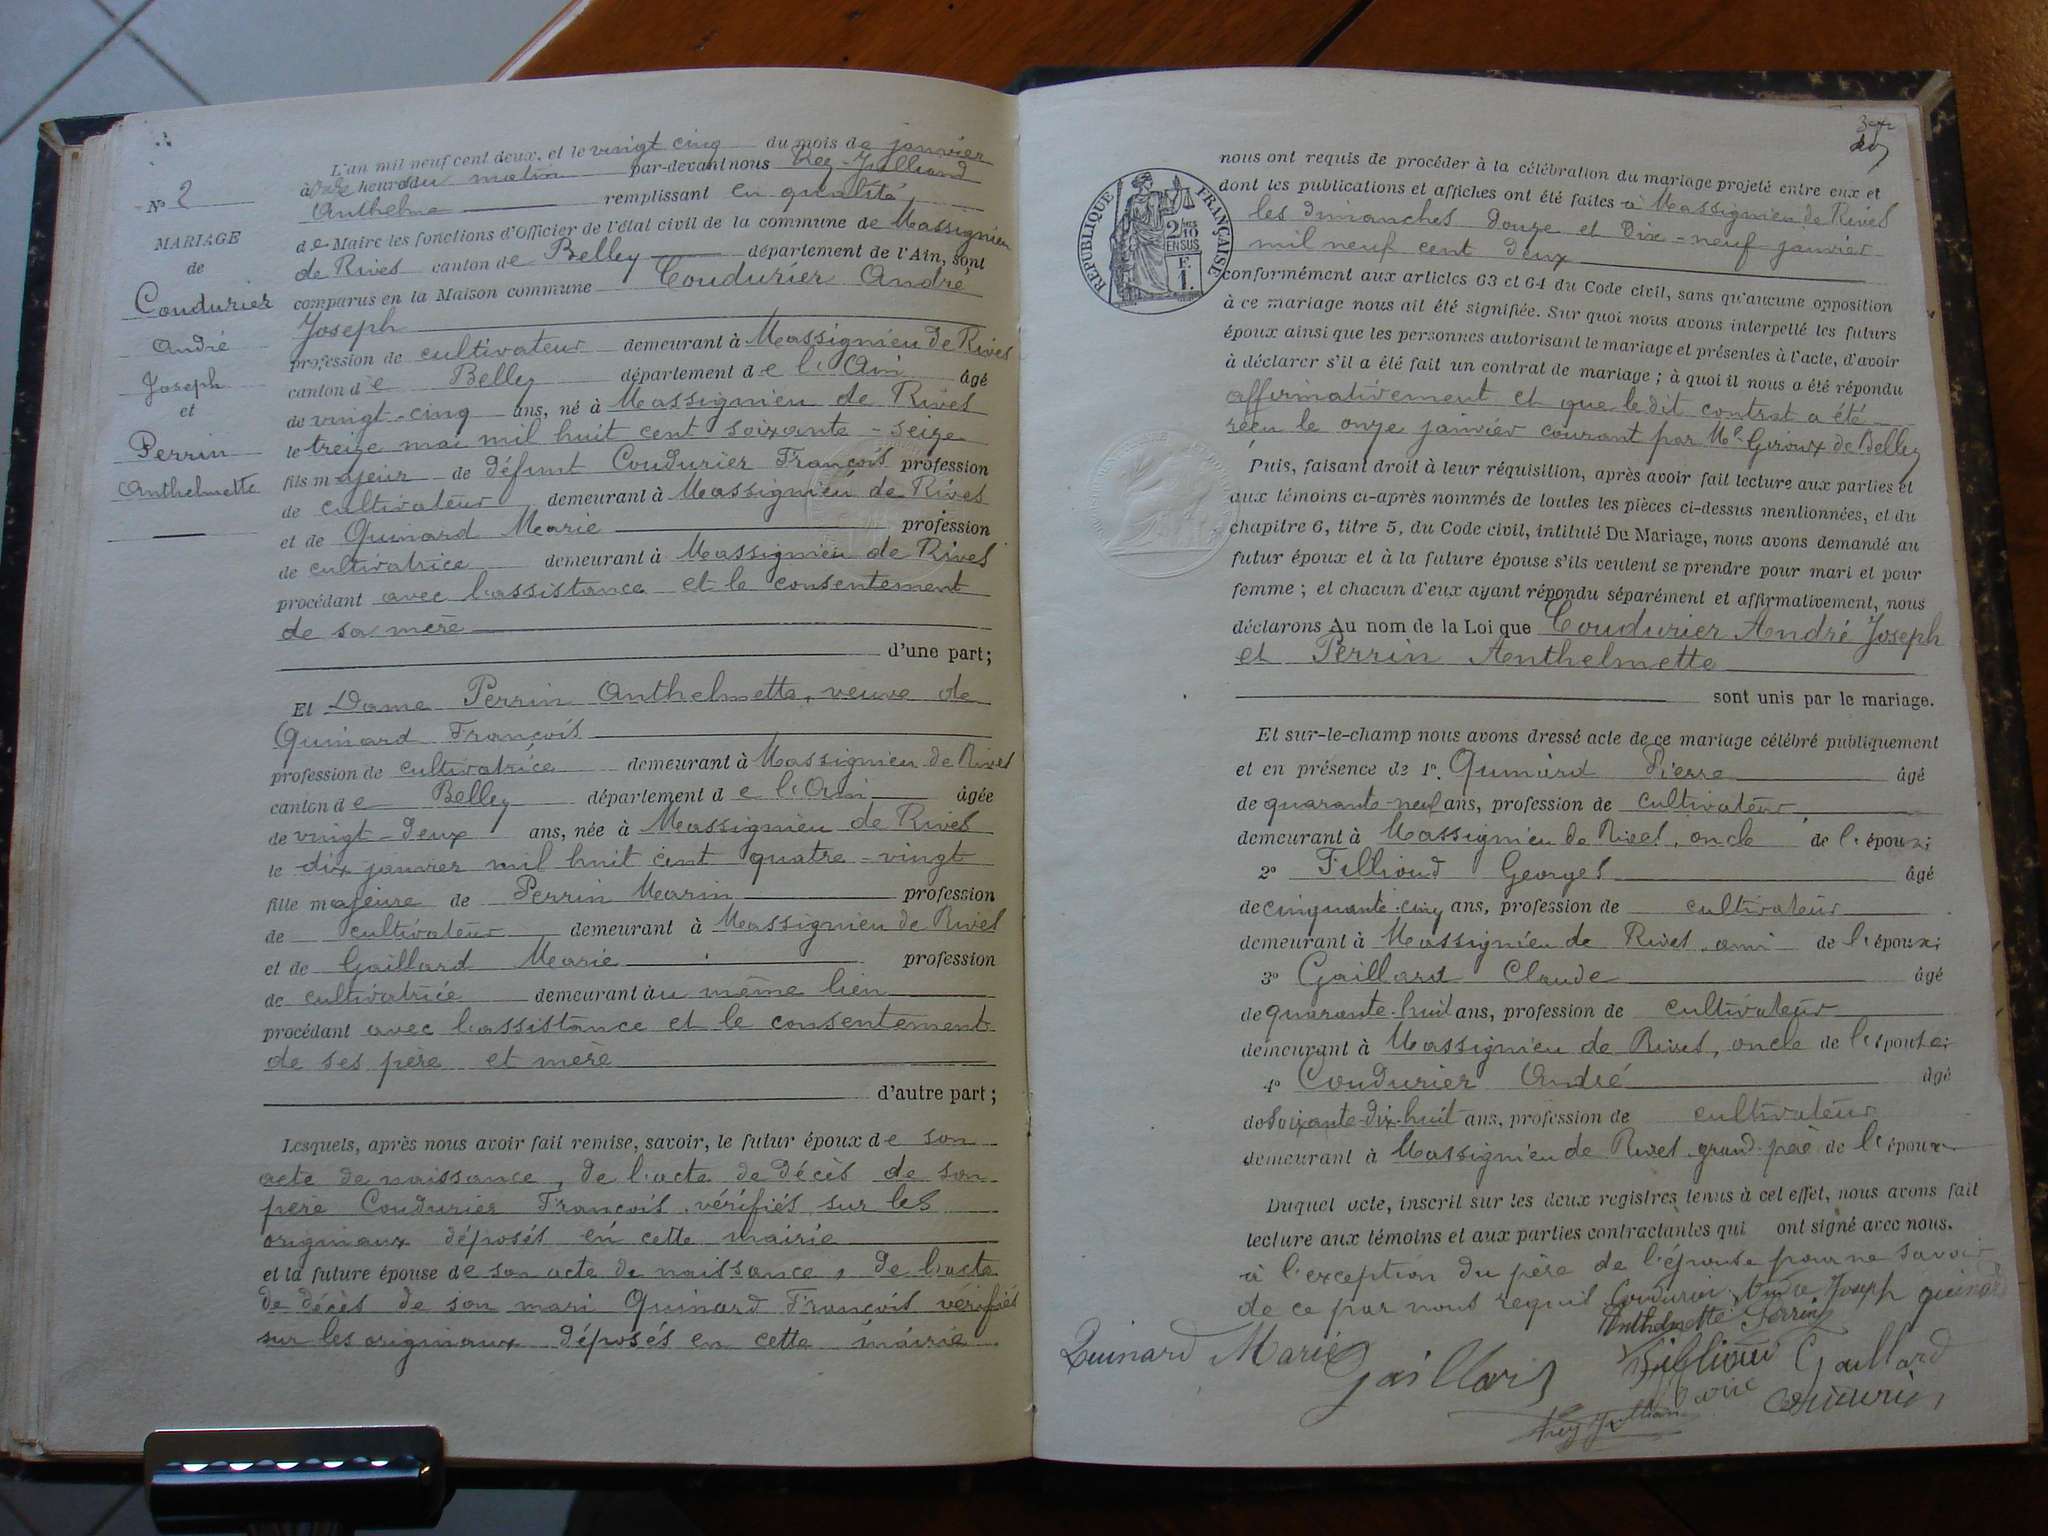 N° 2
MARIAGE
de
Coudurier
André
Joseph
et
Perrin
Anthelmette
L'an mil neuf cent deux, et le vingt cinq du mois de janvier
à onze heures du matin par-devant nous Rey-Juilliand
Anthelme remplissant en qualité
de Maire les fonctions d'Officier de l'état civil de la commune de Massignieu
de Rives canton de Belley département de l'Ain, sont
comparus en la Maison commune Coudurier André
Joseph
profession de cultivateur demeurant à Massignieu de Rives
canton de Belley département de l'Ain âgé
de vingt-cinq ans, né à Massignieu de Rives
le treize mai mil huit cent soixante-seize
fils majeur de défunt Coudurier François profession
de cultivateur demeurant à Massignieu de Rives
et de Quinard Marie profession
de cultivatrice demeurant à Massignieu de Rives
procédant avec l'assistance et le consentement
de sa mère
d'une part;
Et Dame Perrin Anthelmette, veuve de
Quinard François
profession de cultivatrice demeurant à Massignieu de Rives
canton de Belley département de l'Ain âgée
de vingt-deux ans, née à Massignieu de Rives
le dix janvier mil huit cent quatre-vingt
fille majeure de Perrin Marin profession
de cultivateur demeurant à Massignieu de Rives
et de Gaillard Marie profession
de cultivatrice demeurant au même lieu
procédant avec l'assistance et le consentement
de ses père et mère
d'autre part;
Lesquels, après nous avoir fait remise, savoir, le futur époux de son
acte de naissance, de l'acte de décès de son
père Coudurier François, vérifiés sur les
originaux déposés en cette mairie
et la future épouse de son acte de naissance, de l'acte
de décès de son mari Quinard François vérifiés
sur les originaux déposés en cette mairie
RÉPUBLIQUE FRANÇAISE
2/10
EN SUS
F.
1.
nous ont requis de procéder à la célébration du mariage projeté entre eux et
dont les publications et affiches ont été faites à Massignieu de Rives
les dimanches douze et dix-neuf janvier
mil neuf cent deux
conformément aux articles 63 et 64 du Code civil, sans qu'aucune opposition
à ce mariage nous ait été signifiée. Sur quoi nous avons interpellé les futurs
époux ainsi que les personnes autorisant le mariage et présentes à l'acte, d'avoir
à déclarer s'il a été fait un contrat de mariage; à quoi il nous a été répondu
affirmativement et que le dit contrat a été
reçu le onze janvier courant par Me Giroux de Belley
Puis, faisant droit à leur réquisition, après avoir fait lecture aux parties et
aux témoins ci-après nommés de toutes les pièces ci-dessus mentionnées, et du
chapitre 6, titre 5, du Code civil, intitulé Du Mariage, nous avons demandé au
futur époux et à la future épouse s'ils veulent se prendre pour mari et pour
femme; et chacun d'eux ayant répondu séparément et affirmativement, nous
déclarons Au nom de la Loi que Coudurier André Joseph
et Perrin Anthelmette
sont unis par le mariage.
Et sur-le-champ nous avons dressé acte de ce mariage célébré publiquement
et en présence de 1°. Quinard Pierre âgé
de quarante-neuf ans, profession de cultivateur,
demeurant à Massignieu de Rives, oncle de l'époux;
2° Fillioud Georges âgé
de cinquante-cinq ans, profession de cultivateur
demeurant à Massignieu de Rives, ami de l'époux;
3° Gaillard Claude âgé
de quarante-huit ans, profession de cultivateur
demeurant à Massignieu de Rives, oncle de l'épouse;
4° Coudurier André âgé
de soixante-dix-huit ans, profession de cultivateur
demeurant à Massignieu de Rives grand-père de l'époux
Duquel acte, inscrit sur les deux registres tenus à cet effet, nous avons fait
lecture aux témoins et aux parties contractantes qui ont signé avec nous.
à l'exception du père de l'épouse pour ne savoir
de ce par nous requis Coudurier André Joseph Quinard
Anthelmette Perrin
Quinard Marie Gaillard Fillioud Gaillard
Rey Juilliand Maire Coudurier